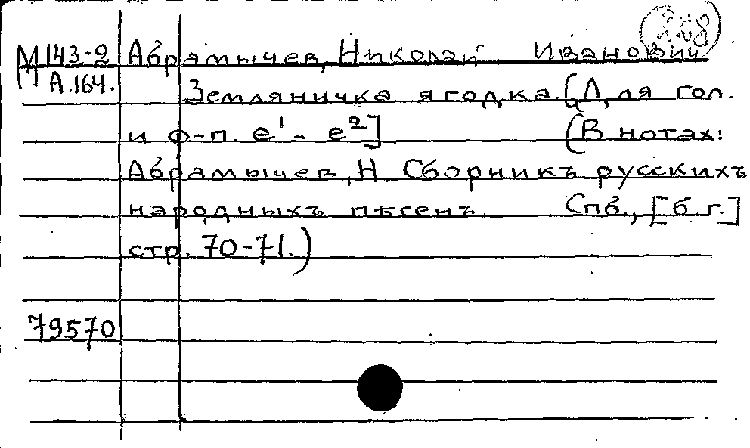 М 143-2 Абрамычев, Николай Иванович
А.164.
Земляничка ягодка. [Для гол.
и ф-п. e¹ - e²] (В нотах:
Абрамычев, Н Сборникъ русскихъ
народныхъ пѣсенъ Спб., [б.г.]
стр. 70-71.)
79570